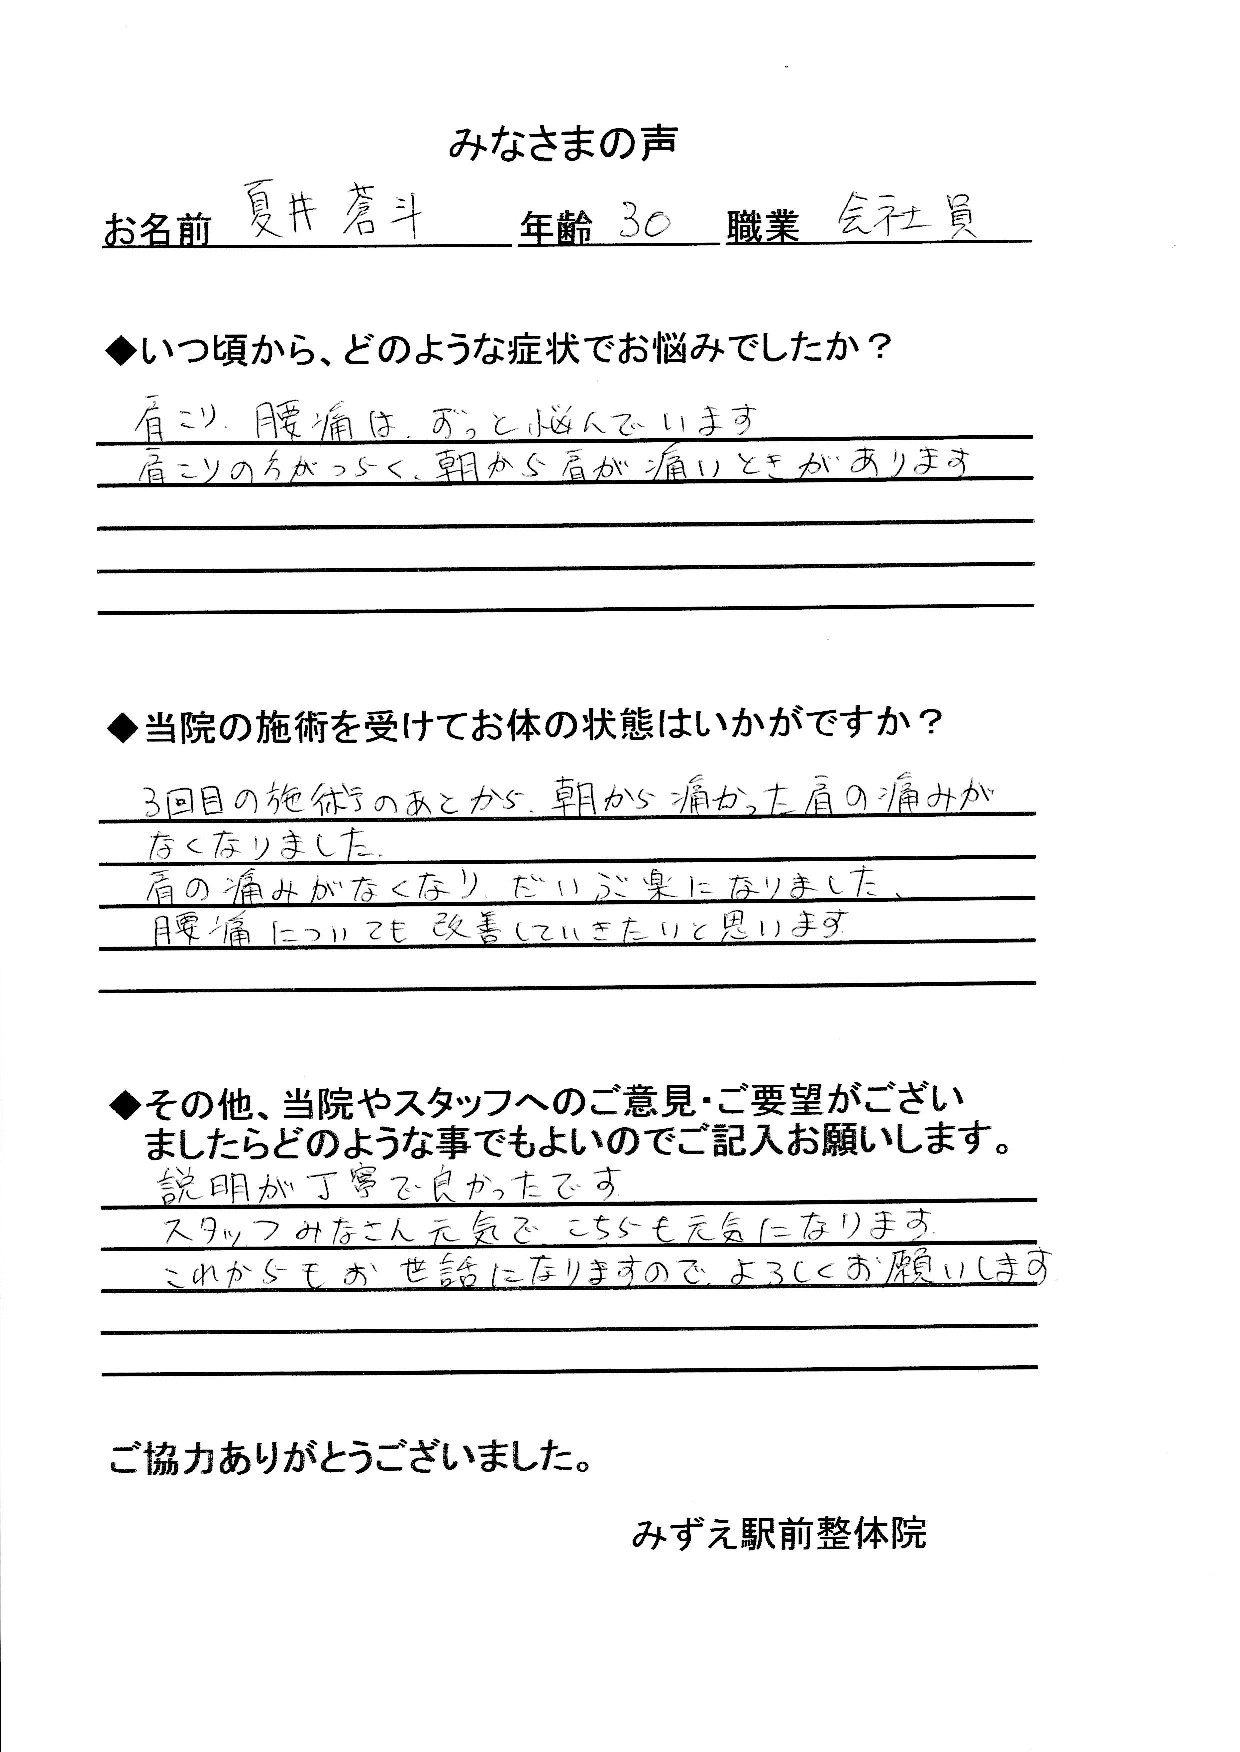 みなさまの声
お名前 夏井 蒼斗 年齢 30 職業 会社員
◆いつ頃から、どのような症状でお悩みでしたか？
肩こり、腰痛は、ずっと悩んでいます
肩こりの方がつらく、朝から肩が痛いときがあります
◆当院の施術を受けてお体の状態はいかがですか？
3回目の施術のあとから、朝から痛かった肩の痛みが
なくなりました。
肩の痛みがなくなり、だいぶ楽になりました、
腰痛についても改善していきたいと思います
◆その他、当院やスタッフへのご意見・ご要望がござい
ましたらどのような事でもよいのでご記入お願いします。
説明が丁寧で良かったです
スタッフみなさん元気で、こちらも元気になります。
これからもお世話になりますので、よろしくお願いします
ご協力ありがとうございました。
みずえ駅前整体院